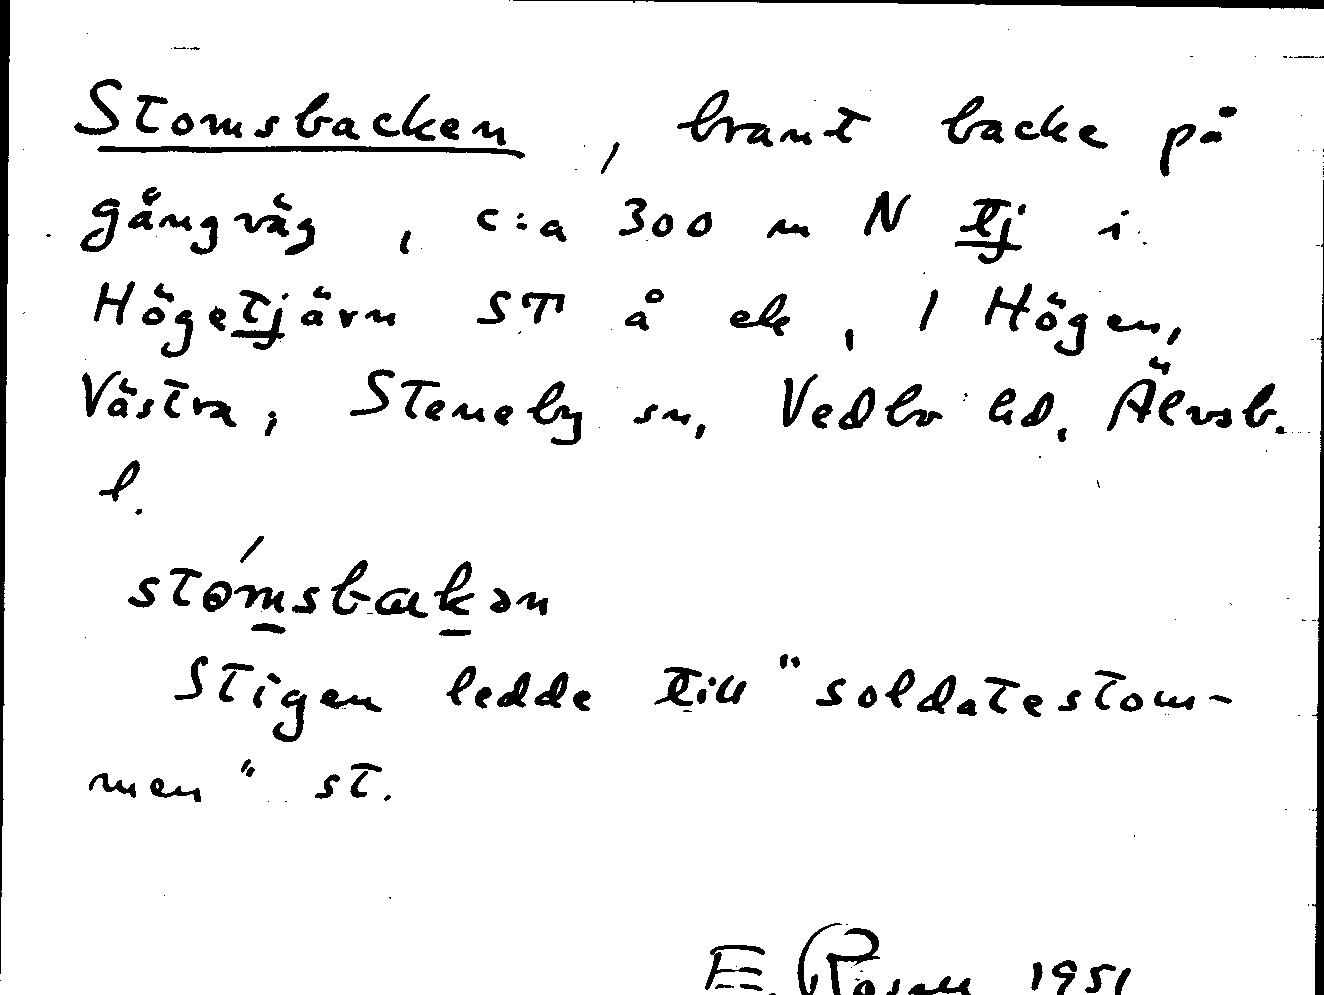 Stomsbacken, brant backe på
gångväg, c:a 300 m N tj i
Högetjärn ST å ek, 1 Högen,
Västra, Steneby sn, Vedbo hd, Älvsb.
l.
stɵ́msbakən
Stigen ledde till "soldatestom-
men" st.
E. Rosell 1951